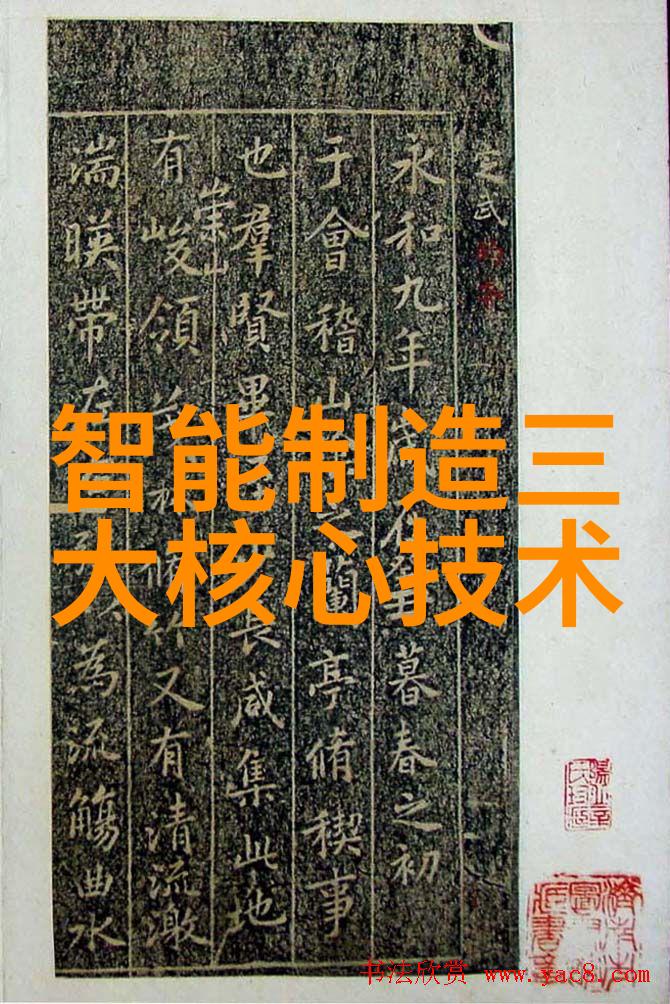 智能制造三
大核心技术
定武
永和九年歲在癸暮春之初
于會稽山之蘭亭脩稧事
也羣賢畢長咸集此地
有崇山峻領茂林脩竹又有清流激
湍暎帶左為流觴曲水
书法欣赏 www.yac8.com